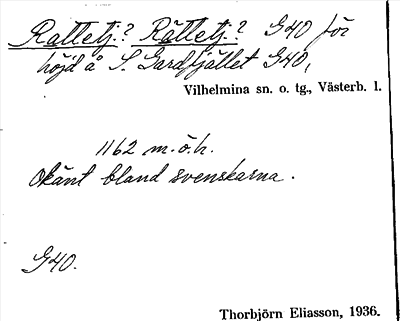 Rattetj.? Råttetj.? G40 för
höjd å S. Gardfjället G40,
Vilhelmina sn. o. tg., Västerb. l.
1162 m. ö. h.
Okänt bland svenskarna.
G40.
Thorbjörn Eliasson, 1936.